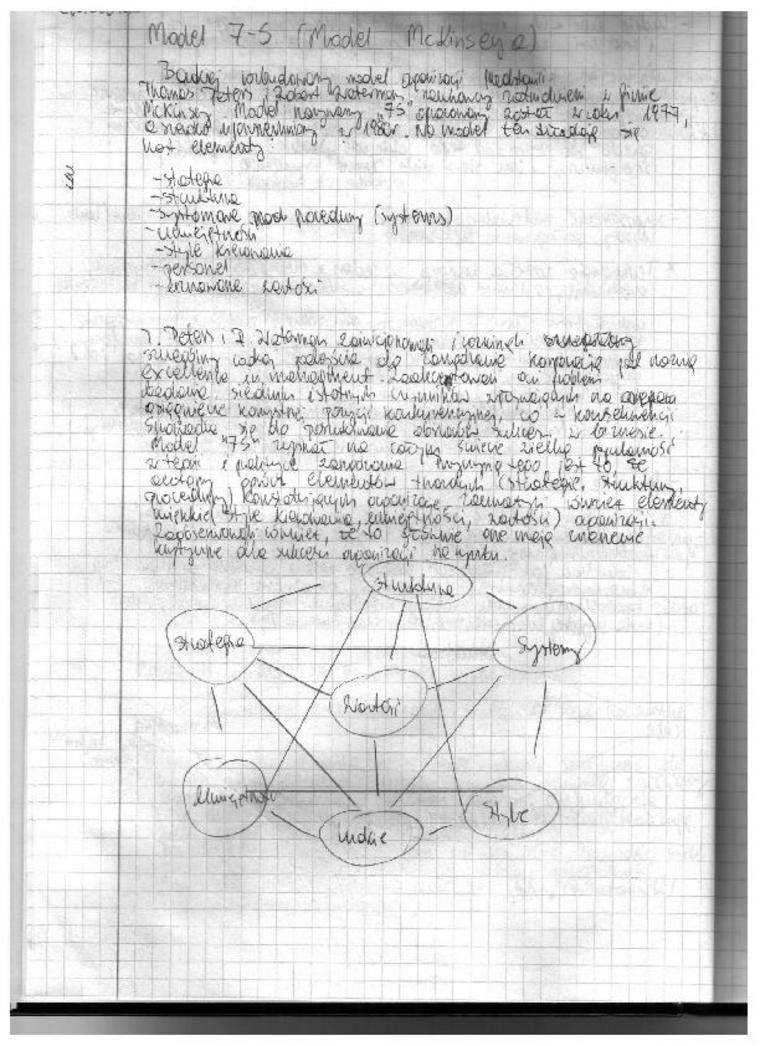 Model 7-S (Model McKinseya)
Bardziej rozbudowany model organizacji przedstawili
Thomas Peters i Robert Waterman, naukowcy zatrudnieni w firmie
McKinsey. Model nazywany "7S" opracowany został w roku 1977,
a szeroko upowszechniony w 1980r. Na model ten składają się
elementy:
- strategia
- struktura
- procedury (systems)
- umiejętności
- style kierowania
- personel
- wartości
T. Peters i R. Waterman zainicjonowali i rozwinęli
podejścia do zarządzania korporacją pod nazwą
excellence in management. on problem
badania siedmiu istotnych czynników na
osiągnięcie korzystnej pozycji konkurencyjnej, co w konsekwencji
sprowadza się do poszukiwania obszarów sukcesu w biznesie.
Model "7S" zyskał na całym świecie wielką popularność
w teorii i praktyce zarządzania. Przyczyną tego jest to, że
oprócz elementów twardych (strategie, struktury,
procedury) konstytuujących organizację również elementy
miękkie (style kierowania, umiejętności, wartości) organizacji.
Zaobserwowali również, że to głównie one mają znaczenie
krytyczne dla sukcesu organizacji na rynku.
Struktura
Strategia
Systemy
Wartości
Umiejętności
Style
Ludzie